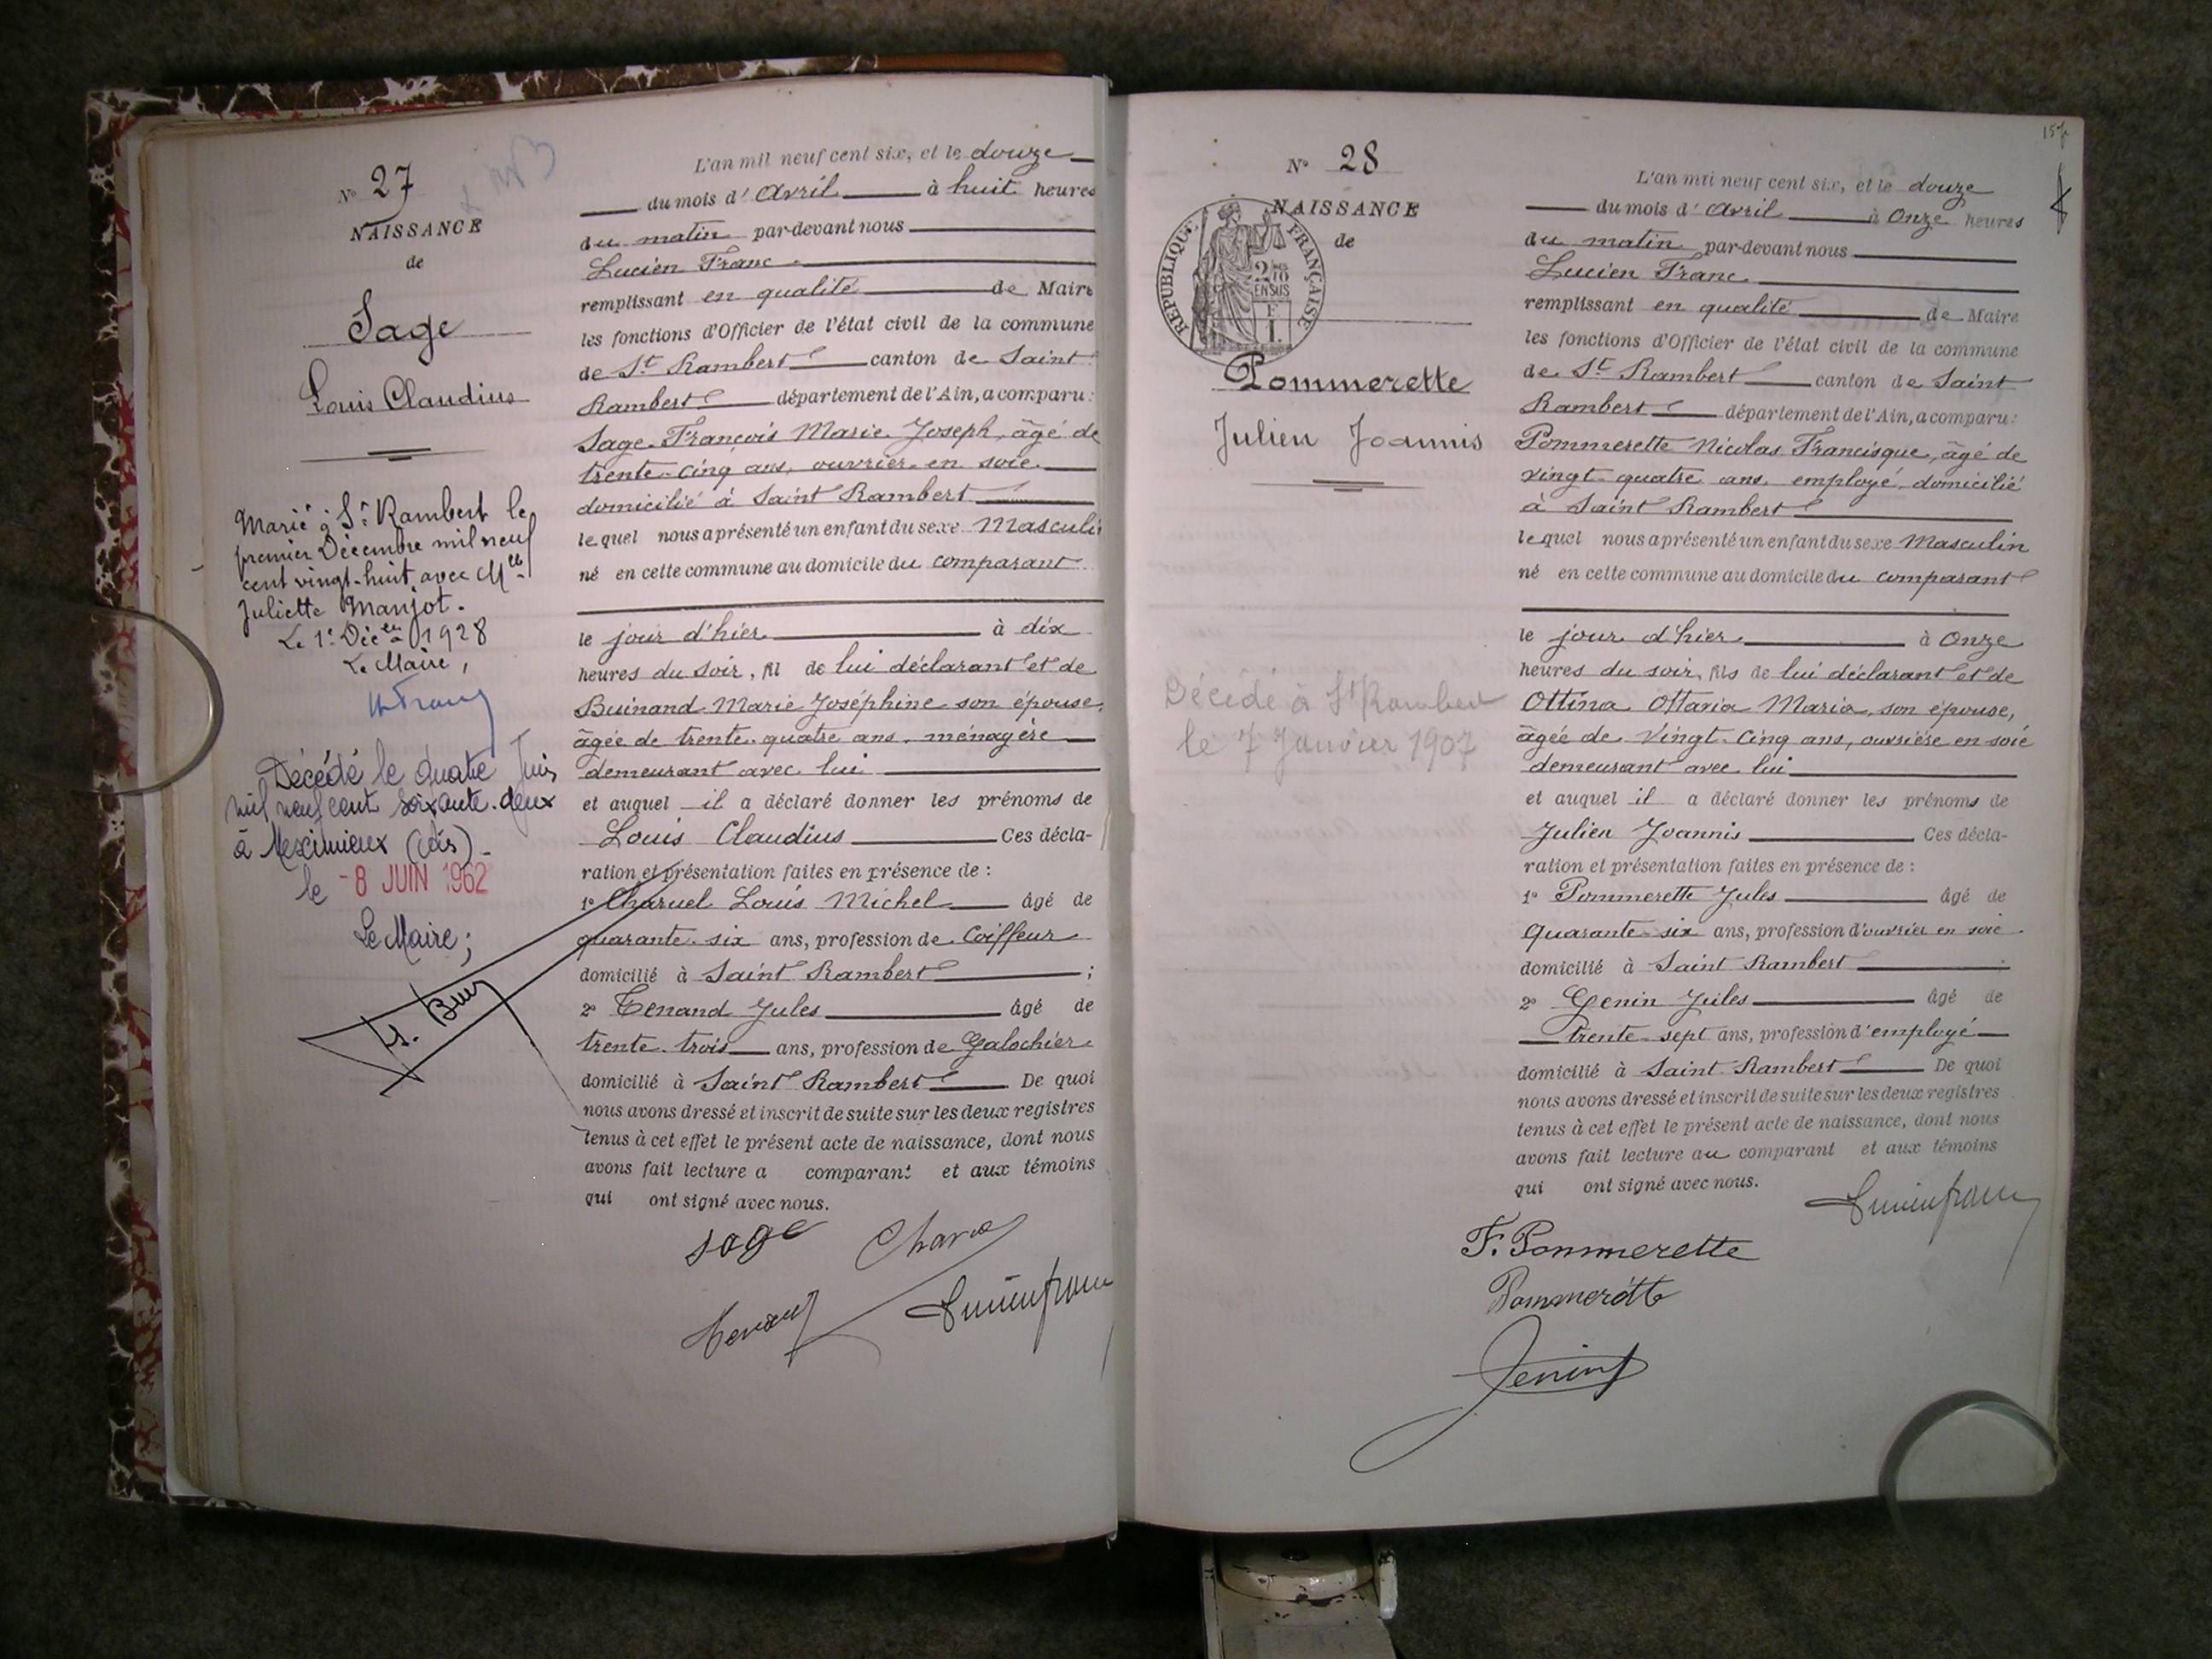 N° 27
NAISSANCE
de
Sage
Louis Claudius
Marié à St Rambert le
premier Décembre mil neuf
cent vingt-huit avec Melle
Juliette Manjot.
Le 1er Décbre 1928
Le Maire,
Décédé le quatre Juin
mil neuf cent soixante-deux
à Meximieux (Ain)
le -8 JUIN 1962
Le Maire;
L'an mil neuf cent six, et le douze
du mois d'Avril à huit heures
du matin par-devant nous
Lucien Franc
remplissant en qualité de Maire
les fonctions d'Officier de l'état civil de la commune
de St Rambert canton de Saint
Rambert département de l'Ain, a comparu:
Sage François Marie Joseph, âgé de
trente-cinq ans, ouvrier en soie
domicilié à Saint Rambert
lequel nous a présenté un enfant du sexe Masculin
né en cette commune au domicile du comparant
le jour d'hier à dix
heures du soir, fil de lui déclarant et de
Buinand Marie Joséphine son épouse,
âgée de trente-quatre ans, ménagère
demeurant avec lui
et auquel il a déclaré donner les prénoms de
Louis Claudius Ces décla-
ration et présentation faites en présence de :
1° Charuel Louis Michel âgé de
quarante-six ans, profession de Coiffeur
domicilié à Saint Rambert ;
2° Tenand Jules âgé de
trente-trois ans, profession de Galochier
domicilié à Saint Rambert De quoi
nous avons dressé et inscrit de suite sur les deux registres
tenus à cet effet le présent acte de naissance, dont nous
avons fait lecture a comparant et aux témoins
qui ont signé avec nous.
sage
Tenand
Lucien Franc
N° 28
NAISSANCE
de
RÉPUBLIQUE FRANÇAISE
2/10 EN SUS
F
1.
Pommerette
Julien Joannis
Décédé à St Rambert
le 7 Janvier 1907
L'an mil neuf cent six, et le douze
du mois d'Avril à Onze heures
du matin par-devant nous
Lucien Franc
remplissant en qualité de Maire
les fonctions d'Officier de l'état civil de la commune
de St Rambert canton de Saint
Rambert département de l'Ain, a comparu:
Pommerette Nicolas Francisque, âgé de
vingt-quatre ans, employé, domicilié
à Saint Rambert
lequel nous a présenté un enfant du sexe Masculin
né en cette commune au domicile du comparant
le jour d'hier à Onze
heures du soir, fils de lui déclarant et de
Ottina Ottavia Maria, son épouse,
âgée de vingt-cinq ans, ouvrière en soie
demeurant avec lui
et auquel il a déclaré donner les prénoms de
Julien Joannis Ces décla-
ration et présentation faites en présence de :
1° Pommerette Jules âgé de
quarante-six ans, profession d'ouvrier en soie
domicilié à Saint Rambert
2° Genin Jules âgé de
trente-sept ans, profession d'employé
domicilié à Saint Rambert De quoi
nous avons dressé et inscrit de suite sur les deux registres
tenus à cet effet le présent acte de naissance, dont nous
avons fait lecture au comparant et aux témoins
qui ont signé avec nous.
Lucien Franc
F. Pommerette
Pommerette
Jenin